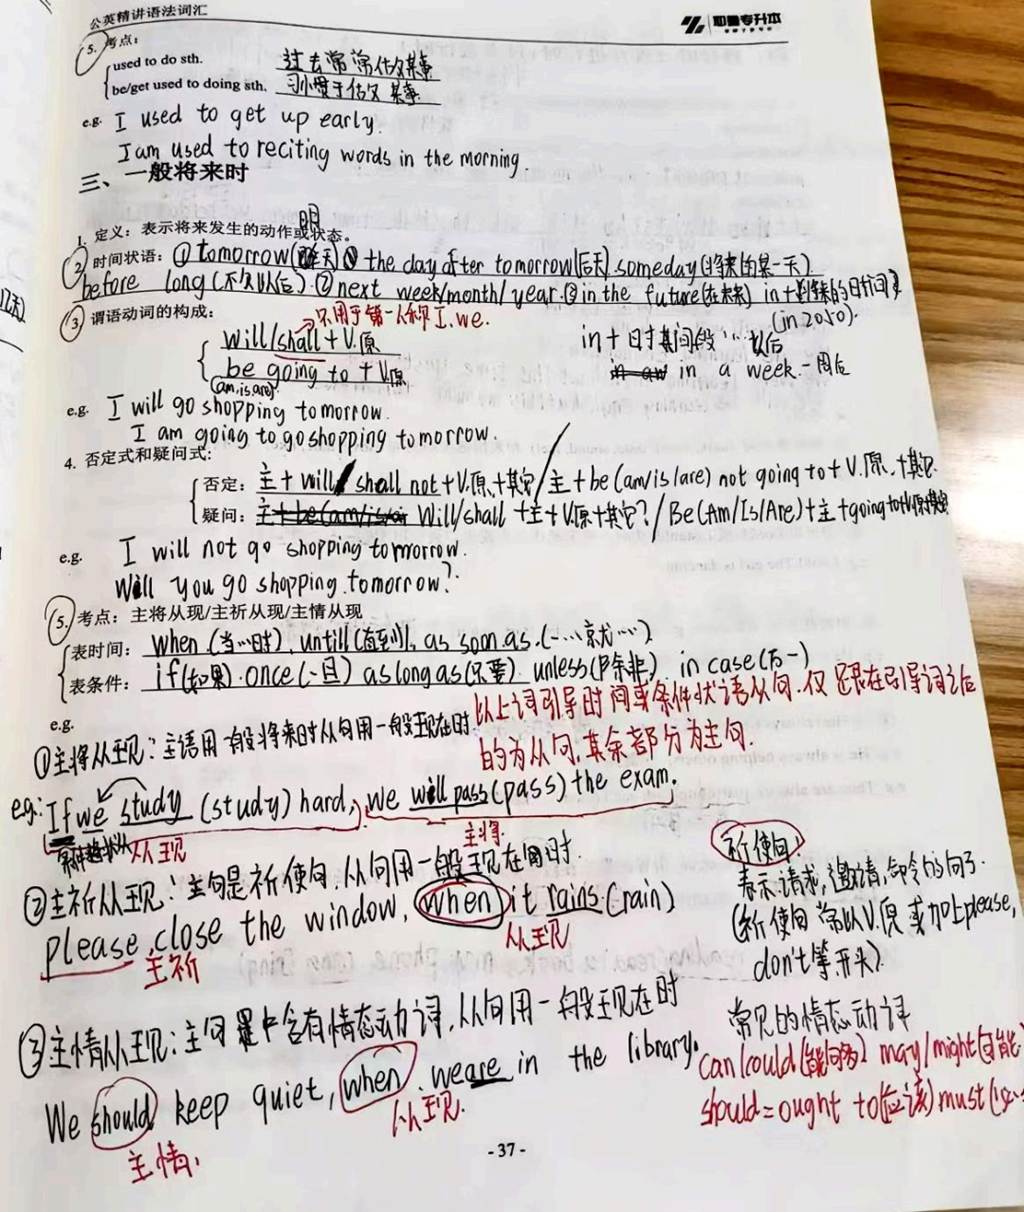 公英精讲语法词汇
5. 考点：
used to do sth. 过去常常做某事
be/get used to doing sth. 习惯于做某事
e.g. I used to get up early.
I am used to reciting words in the morning
三、一般将来时
1. 定义：表示将来发生的动作或状态。
明
2. 时间状语：① tomorrow(天) the day after tomorrow(后天) someday(将来的某一天)
before long(不久以后) ② next week/month/year ③ in the future(在未来) in+到将来的时间
(in 2050).
3. 谓语动词的构成：
只用于第一人称 I, we.
will/shall + V.原
be going to + V.原
(am, is, are)
in + 时间段 … 以后
in a week 一周后
e.g. I will go shopping tomorrow.
I am going to go shopping tomorrow.
4. 否定式和疑问式：
否定：主+ will/shall not+V.原+其它/主+be(am/is/are) not going to+V.原+其它
疑问：Will/shall +主+V.原+其它?/Be(Am/Is/Are)+主+going to+V.原+其它
e.g. I will not go shopping tomorrow.
Will you go shopping tomorrow?
5. 考点：主将从现/主祈从现/主情从现
表时间：when(当…时), untill(直到), as soon as (一…就…)
表条件：if(如果) once(一旦) as long as(只要) unless(除非) in case(万一)
e.g.
以上词引导时间或条件状语从句. 仅跟在引导词之后
的为从句, 其余部分为主句.
①主将从现：主语用一般将来时从句用一般现在时.
e.g: If we study (study) hard, we will pass(pass) the exam.
从现
主将.
祈使句:
表示请求, 邀请, 命令的句子.
(祈使句常以V.原或加上please,
don't等开头)
②主祈从现：主句是祈使句. 从句用一般现在时.
please close the window, when it rains (rain)
主祈
从现
③主情从现：主句中含有情态动词, 从句用一般现在时
We should keep quiet, when we are in the library.
主情,
从现.
常见的情态动词
can/could(能够) may/might(可能
should = ought to(应该) must(必
- 37 -